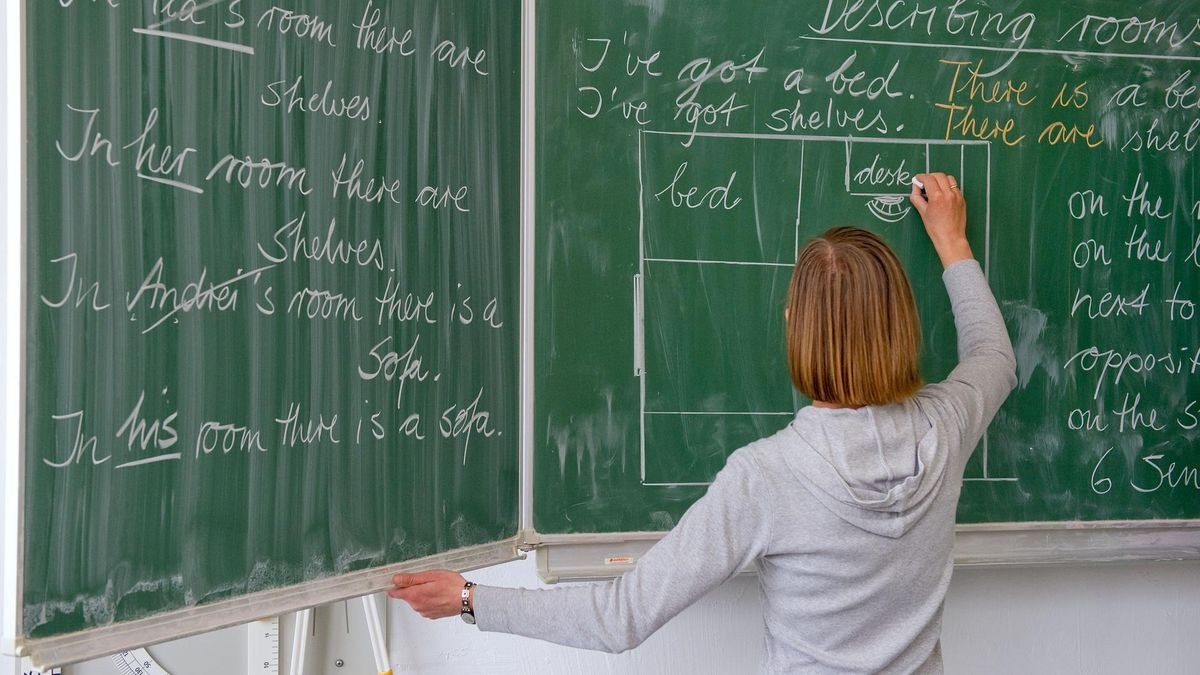 room there are
shelves.
In her room there are
Shelves.
In Andrei's room there is a
Sofa.
In his room there is a sofa.
Describing rooms
I've got a bed. There is a
I've got shelves. There are
bed
desk
on the
on the
next to
on the
6